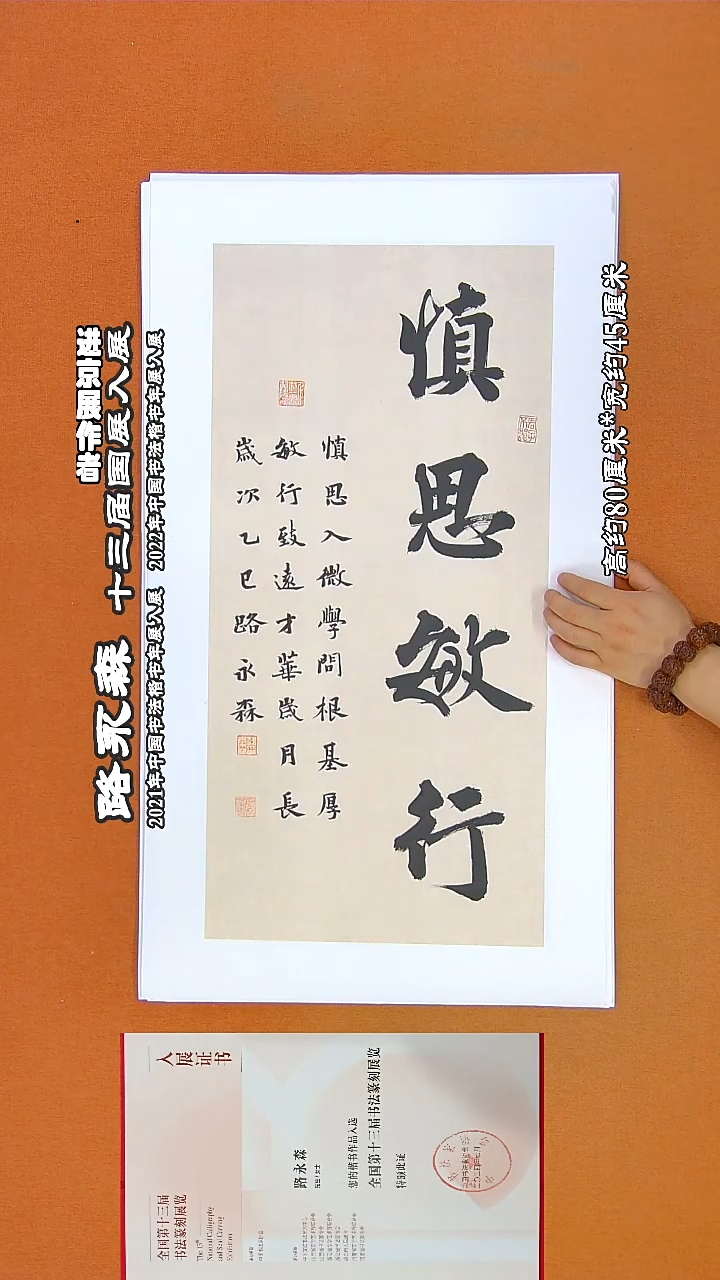 慎思敏行
慎思入微學問根基厚
敏行致遠才華歲月長
歲次乙巳路永森
路永森 十三届国展入展
2021年中国书法楷书年展入展 2022年中国书法楷书年展入展
高约80厘米*宽约45厘米
入展证书
全国第十三届
书法篆刻展览
The 13th
National Calligraphy
and Seal Carving
Exhibition
路永森
您的楷书作品入选
全国第十三届书法篆刻展览
特颁此证